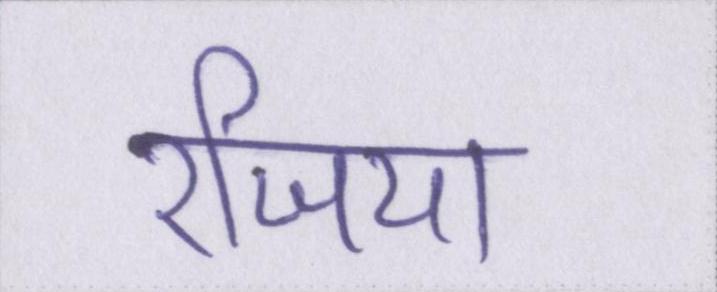 रजिया